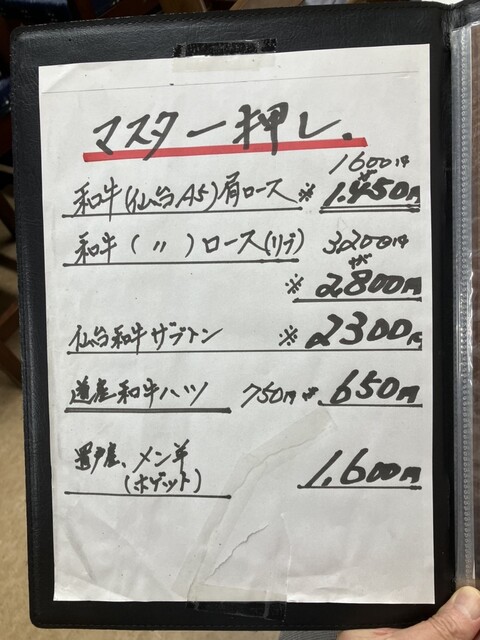 マスター押し.
1600円
和牛(仙台A5)肩ロース ※1.450円
和牛(〃)ロース(リブ) 3200円
※2.800円
仙台和牛ザブトン ※2300円
道産和牛ハツ 750円※650円
メン羊 1.600円
(ホゲット)